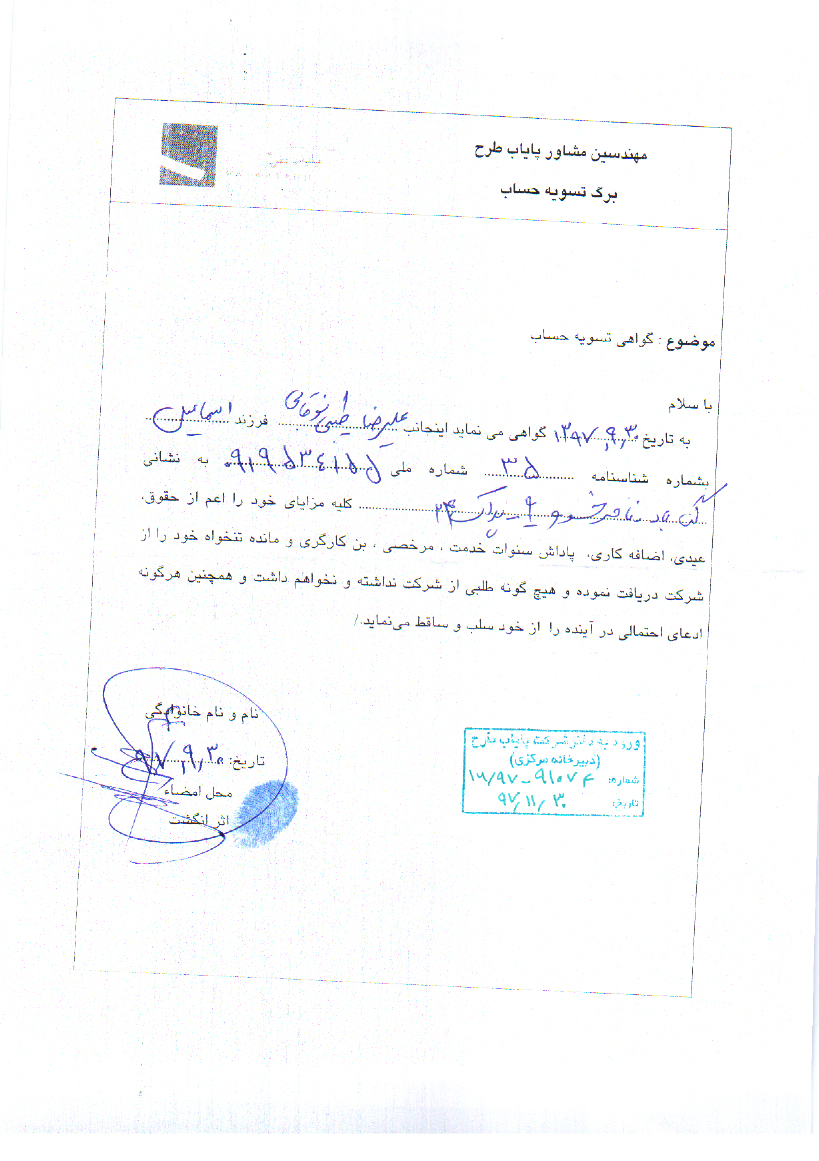 مهندسین مشاور پایاب طرح
برگ تسویه حساب
پایاب طرح
موضوع : گواهی تسویه حساب
با سلام
به تاریخ ۱۳۹۷,۹,۳۰ گواهی می نماید اینجانب علیرضا طیبی نوقابی فرزند اسماعیل
بشماره شناسنامه ۳۵ شماره ملی به نشانی
پلاک ۲۴ کلیه مزایای خود را اعم از حقوق،
عیدی، اضافه کاری، پاداش سنوات خدمت ، مرخصی ، بن کارگری و مانده تنخواه خود را از
شرکت دریافت نموده و هیچ گونه طلبی از شرکت نداشته و نخواهم داشت و همچنین هرگونه
ادعای احتمالی در آینده را از خود سلب و ساقط می‌نماید./
نام و نام خانوادگی
تاریخ: ۹۷,۹,۳۰
محل امضاء
اثر انگشت
ورود به دفتر شرکت پایاب طرح
(دبیرخانه مرکزی)
شماره: ۱۶/۹۷-۹۱۰۷۴
تاریخ: ۹۷/۱۱/۳۰